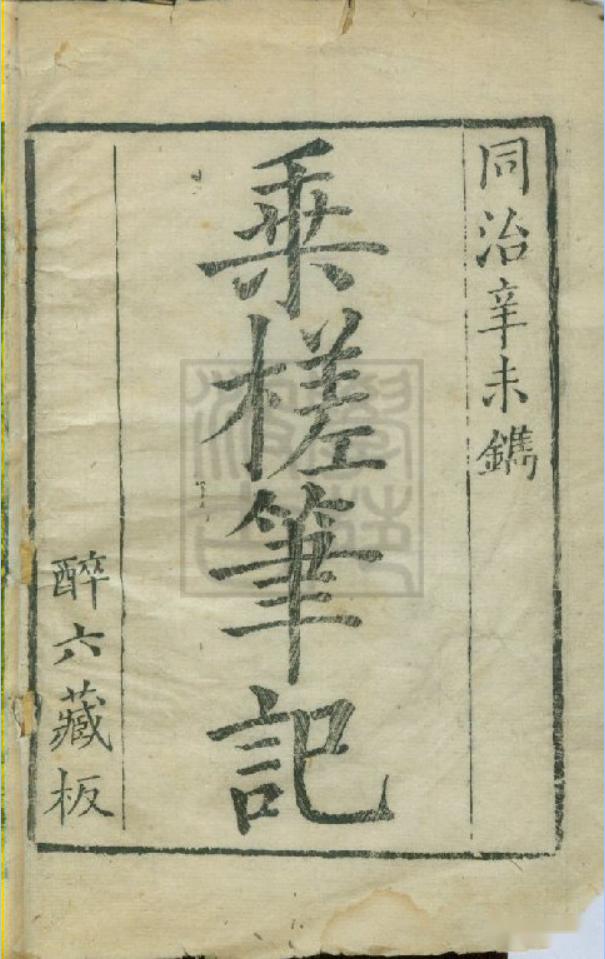 同治辛未鐫
乘槎筆記
醉六藏板